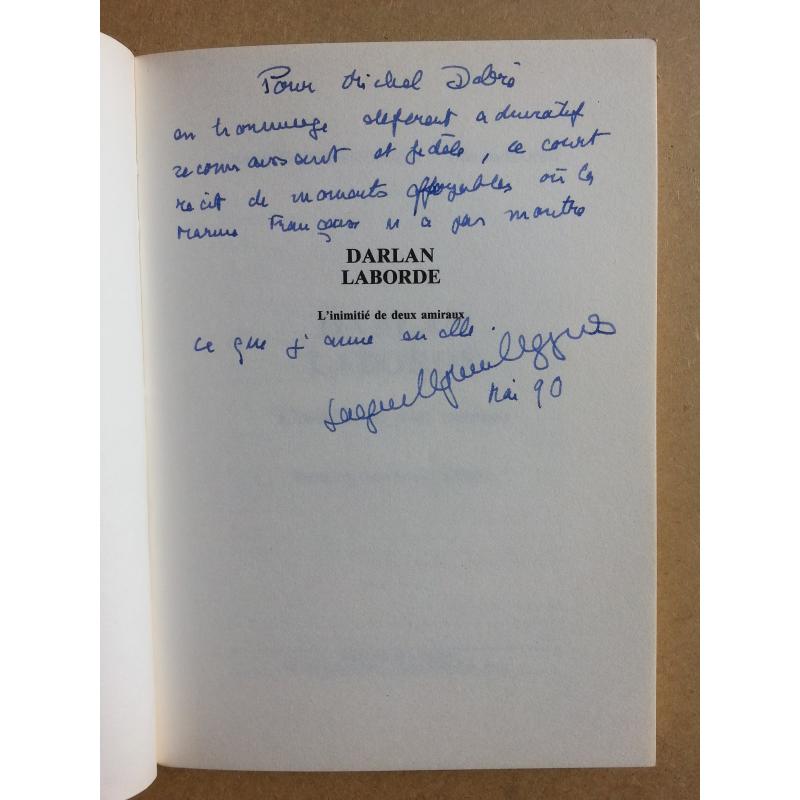 Pour Michel Debré
en hommage déférent admiratif
reconnaissant et fidèle, ce court
récit de moments effroyables où la
Marine Française n'a pas montré
DARLAN
LABORDE
L'inimitié de deux amiraux
ce que j'aime en elle.
Mai 90